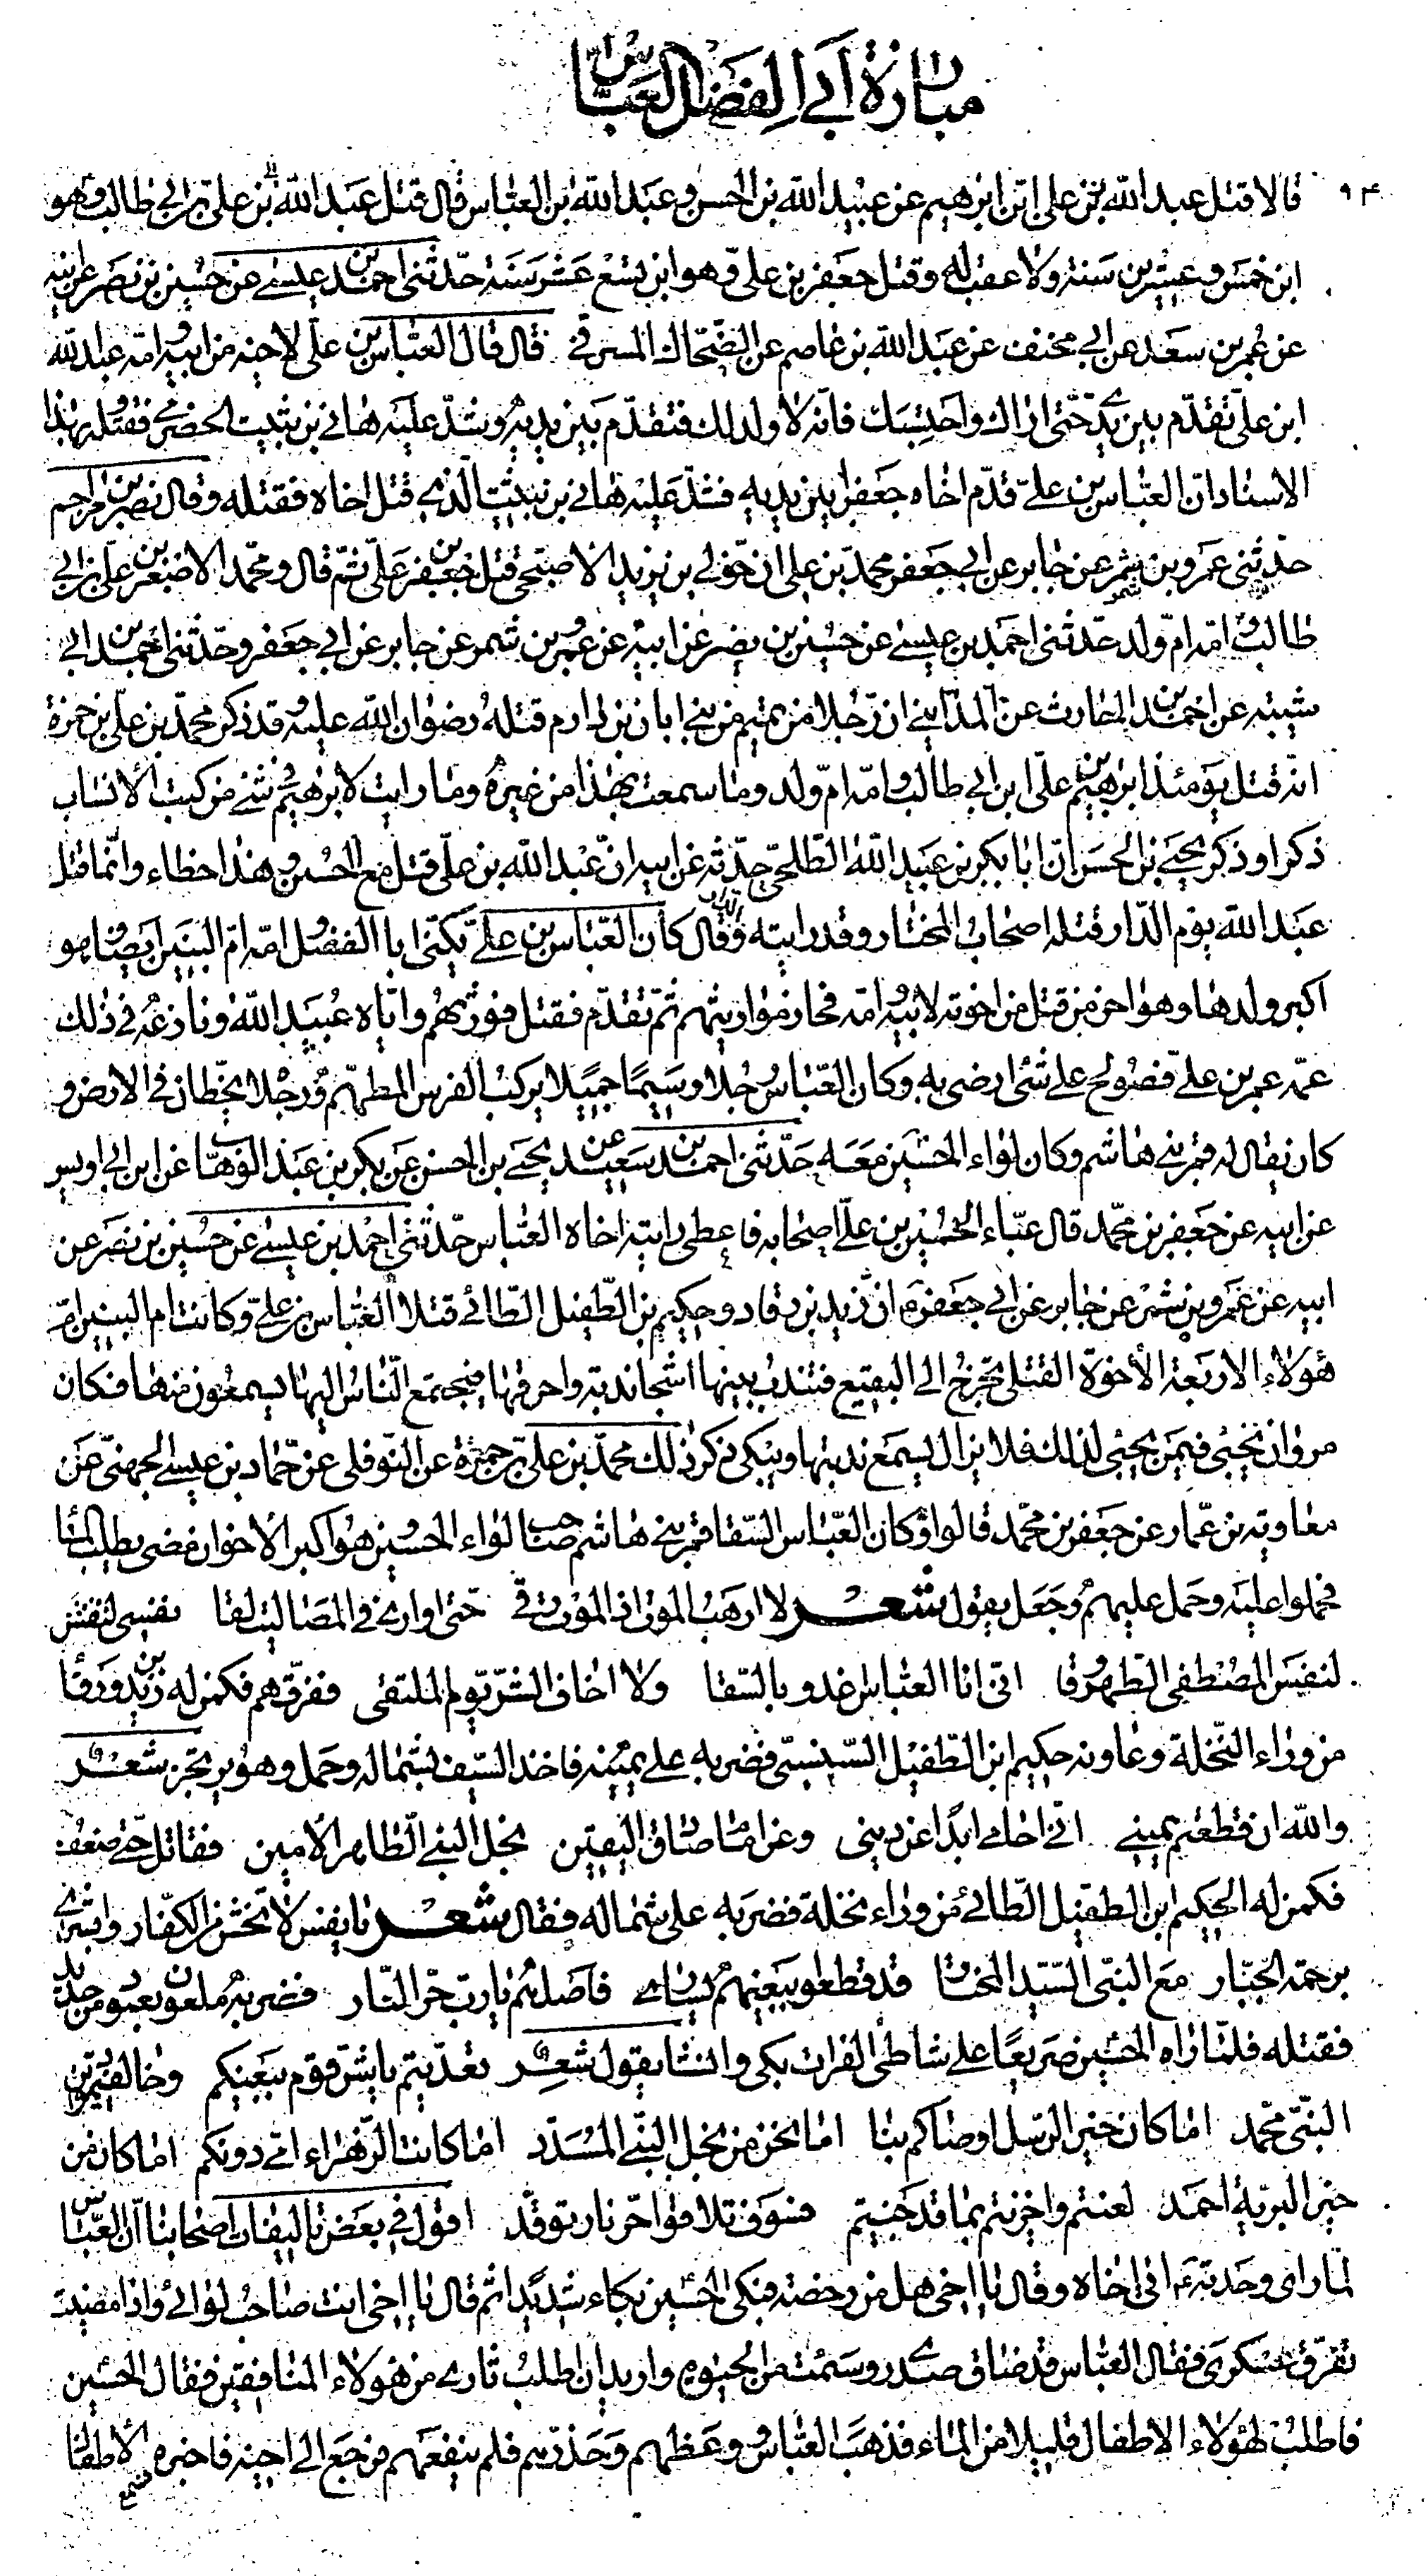 مبارزة ابي الفضل العباس
٩٤ قالا قتل عبد الله بن علي ابن ابرهيم عن عبيد الله بن الحسن و عبد الله بن العباس قال قتل عبد الله بن علي بن ابي طالب و هو
ابن خمس و عشرين سنة ولا عقب له و قتل جعفر بن علي و هو ابن تسع عشر سنة حدثني احمد بن عيسى عن حسين بن نصر عن ابيه
عن عمر بن سعد عن ابي مخنف عن عبد الله بن عاصم عن الضحاك المسرقي قال قال العباس بن علي لاخيه من ابيه و امه عبد الله
ابن علي تقدم بين يدي حتى اراك واحتسبك فانه لا ولد لك فتقدم بين يديه و شد عليه هاني بن ثبيت الحضرمي فقتله و بهذا
الاسناد ان العباس بن علي قدم اخاه جعفرا بين يديه فشد عليه هاني بن ثبيت الذي قتل اخاه فقتله و قال نصر بن مزاحم
حدثني عمرو بن شمر عن جابر عن ابي جعفر محمد بن علي ان خولي بن يزيد الاصبحي قتل جعفر بن علي ثم قال و محمد الاصغر بن علي بن ابي
طالب و امه ام ولد حدثني احمد بن عيسى عن حسين بن نصر عن ابيه عن عمرو بن شمر عن جابر عن ابي جعفر و حدثني احمد بن ابي
شيبه عن احمد بن الحارث عن المدايني ان رجلا من تميم من بني ابان بن دارم قتله رضوان الله عليه و قد ذكر محمد بن علي بن حمزة
انه قتل يومئذ ابرهيم بن علي ابن ابي طالب و امه ام ولد وما سمعت بهذا من غيره وما رايت لابرهيم في شئ من كتب الانساب
ذكرا و ذكر يحيى بن الحسن ان ابا بكر بن عبيد الله الطلحي حدثه عن ابيه ان عبد الله بن علي قتل مع الحسين و هذا خطاء وانما قتل
عبد الله يوم الدار قتله اصحاب المختار وقد رايته و قال كان العباس بن علي يكنى ابا الفضل امه ام البنين ايضا و هو
اكبر ولدها و هو اخر من قتل من اخوته لابيه و امه فحاز مواريثهم ثم تقدم فقتل فورثهم واياه عبيد الله و نازعه في ذلك
عمه عمر بن علي فصولح على شئ ارضى به وكان العباس رجلا وسيما جميلا يركب الفرس المطهم و رجلاه يخطان في الارض و
كان يقال له قمر بني هاشم وكان لواء الحسين معه حدثني احمد بن سعيد عن يحيى بن الحسن عن بكر بن عبد الوهاب عن ابن ابي اويس
عن ابيه عن جعفر بن محمد قال عباء الحسين بن علي اصحابه فاعطى رايته اخاه العباس حدثني احمد بن عيسى عن حسين بن نصر عن
ابيه عن عمرو بن شمر عن جابر عن ابي جعفر ان زيد بن رقاد و حكيم بن الطفيل الطائي قتلا العباس بن علي و كانت ام البنين ام
هؤلاء الاربعة الاخوة القتلى تخرج الى البقيع فتندب بنيها اشجا ندبة واحرقها فيجتمع الناس اليها يسمعون منها فكان
مروان يجئ فيمن يجئ لذلك فلا يزال يسمع ندبتها ويبكي ذكر ذلك محمد بن علي بن حمزة عن النوفلي عن حماد بن عيسى الجهني عن
معاوية بن عمار عن جعفر بن محمد قالوا و كان العباس السقا قمر بني هاشم صاحب لواء الحسين و هو اكبر الاخوان فمضى يطلب الماء
فحملوا عليه وحمل عليهم و جعل يقول شعر لا ارهب الموت اذ الموت رقى حتى اوارى في المصاليت لقا نفسي لنفس
لنفس المصطفى الطهر وقا اني انا العباس اغدو بالسقا ولا اخاف الشر يوم الملتقى ففرقهم فكمن له زيد بن ورقا
من وراء النخلة و عاونه حكيم ابن الطفيل السنبسي فضربه على يمينه فاخذ السيف بشماله و حمل و هو يرتجز شعر
والله ان قطعتم يميني اني احامي ابدا عن ديني وعن امام صادق اليقين نجل النبي الطاهر الامين فقاتل حتى ضعف
فكمن له الحكيم بن الطفيل الطائي من وراء نخلة فضربه على شماله فقال شعر يا نفس لا تخشى من الكفار وابشري
برحمة الجبار مع النبي السيد المختار قد قطعوا ببغيهم يساري فاصلهم يا رب حر النار فضربه ملعون بعمود من حديد
فقتله فلما راه الحسين صريعا على شاطئ الفرات بكى وانشا يقول شعر تعديتم يا شر قوم ببغيكم وخالفتموا دين
النبي محمد اما كان خير الرسل اوصاكم بنا اما نحن من نجل النبي المسدد اما كانت الزهراء امي دونكم اما كان من
خير البرية احمد لعنتم واخزيتم بما قد جنيتم فسوف تلاقوا حر نار توقد اقول في بعض تاليفات اصحابنا ان العباس
لما راى وحدته اتى اخاه وقال يا اخي هل من رخصة فبكى الحسين بكاء شديدا ثم قال يا اخي انت صاحب لوائي واذا مضيت
تفرق عسكري فقال العباس قد ضاق صدري وسئمت من الحيوة واريد ان اطلب ثاري من هؤلاء المنافقين فقال الحسين
فاطلب لهؤلاء الاطفال قليلا من الماء فذهب العباس و وعظهم وحذرهم فلم ينفعهم فرجع الى اخيه فاخبره الاطفال
فسمع